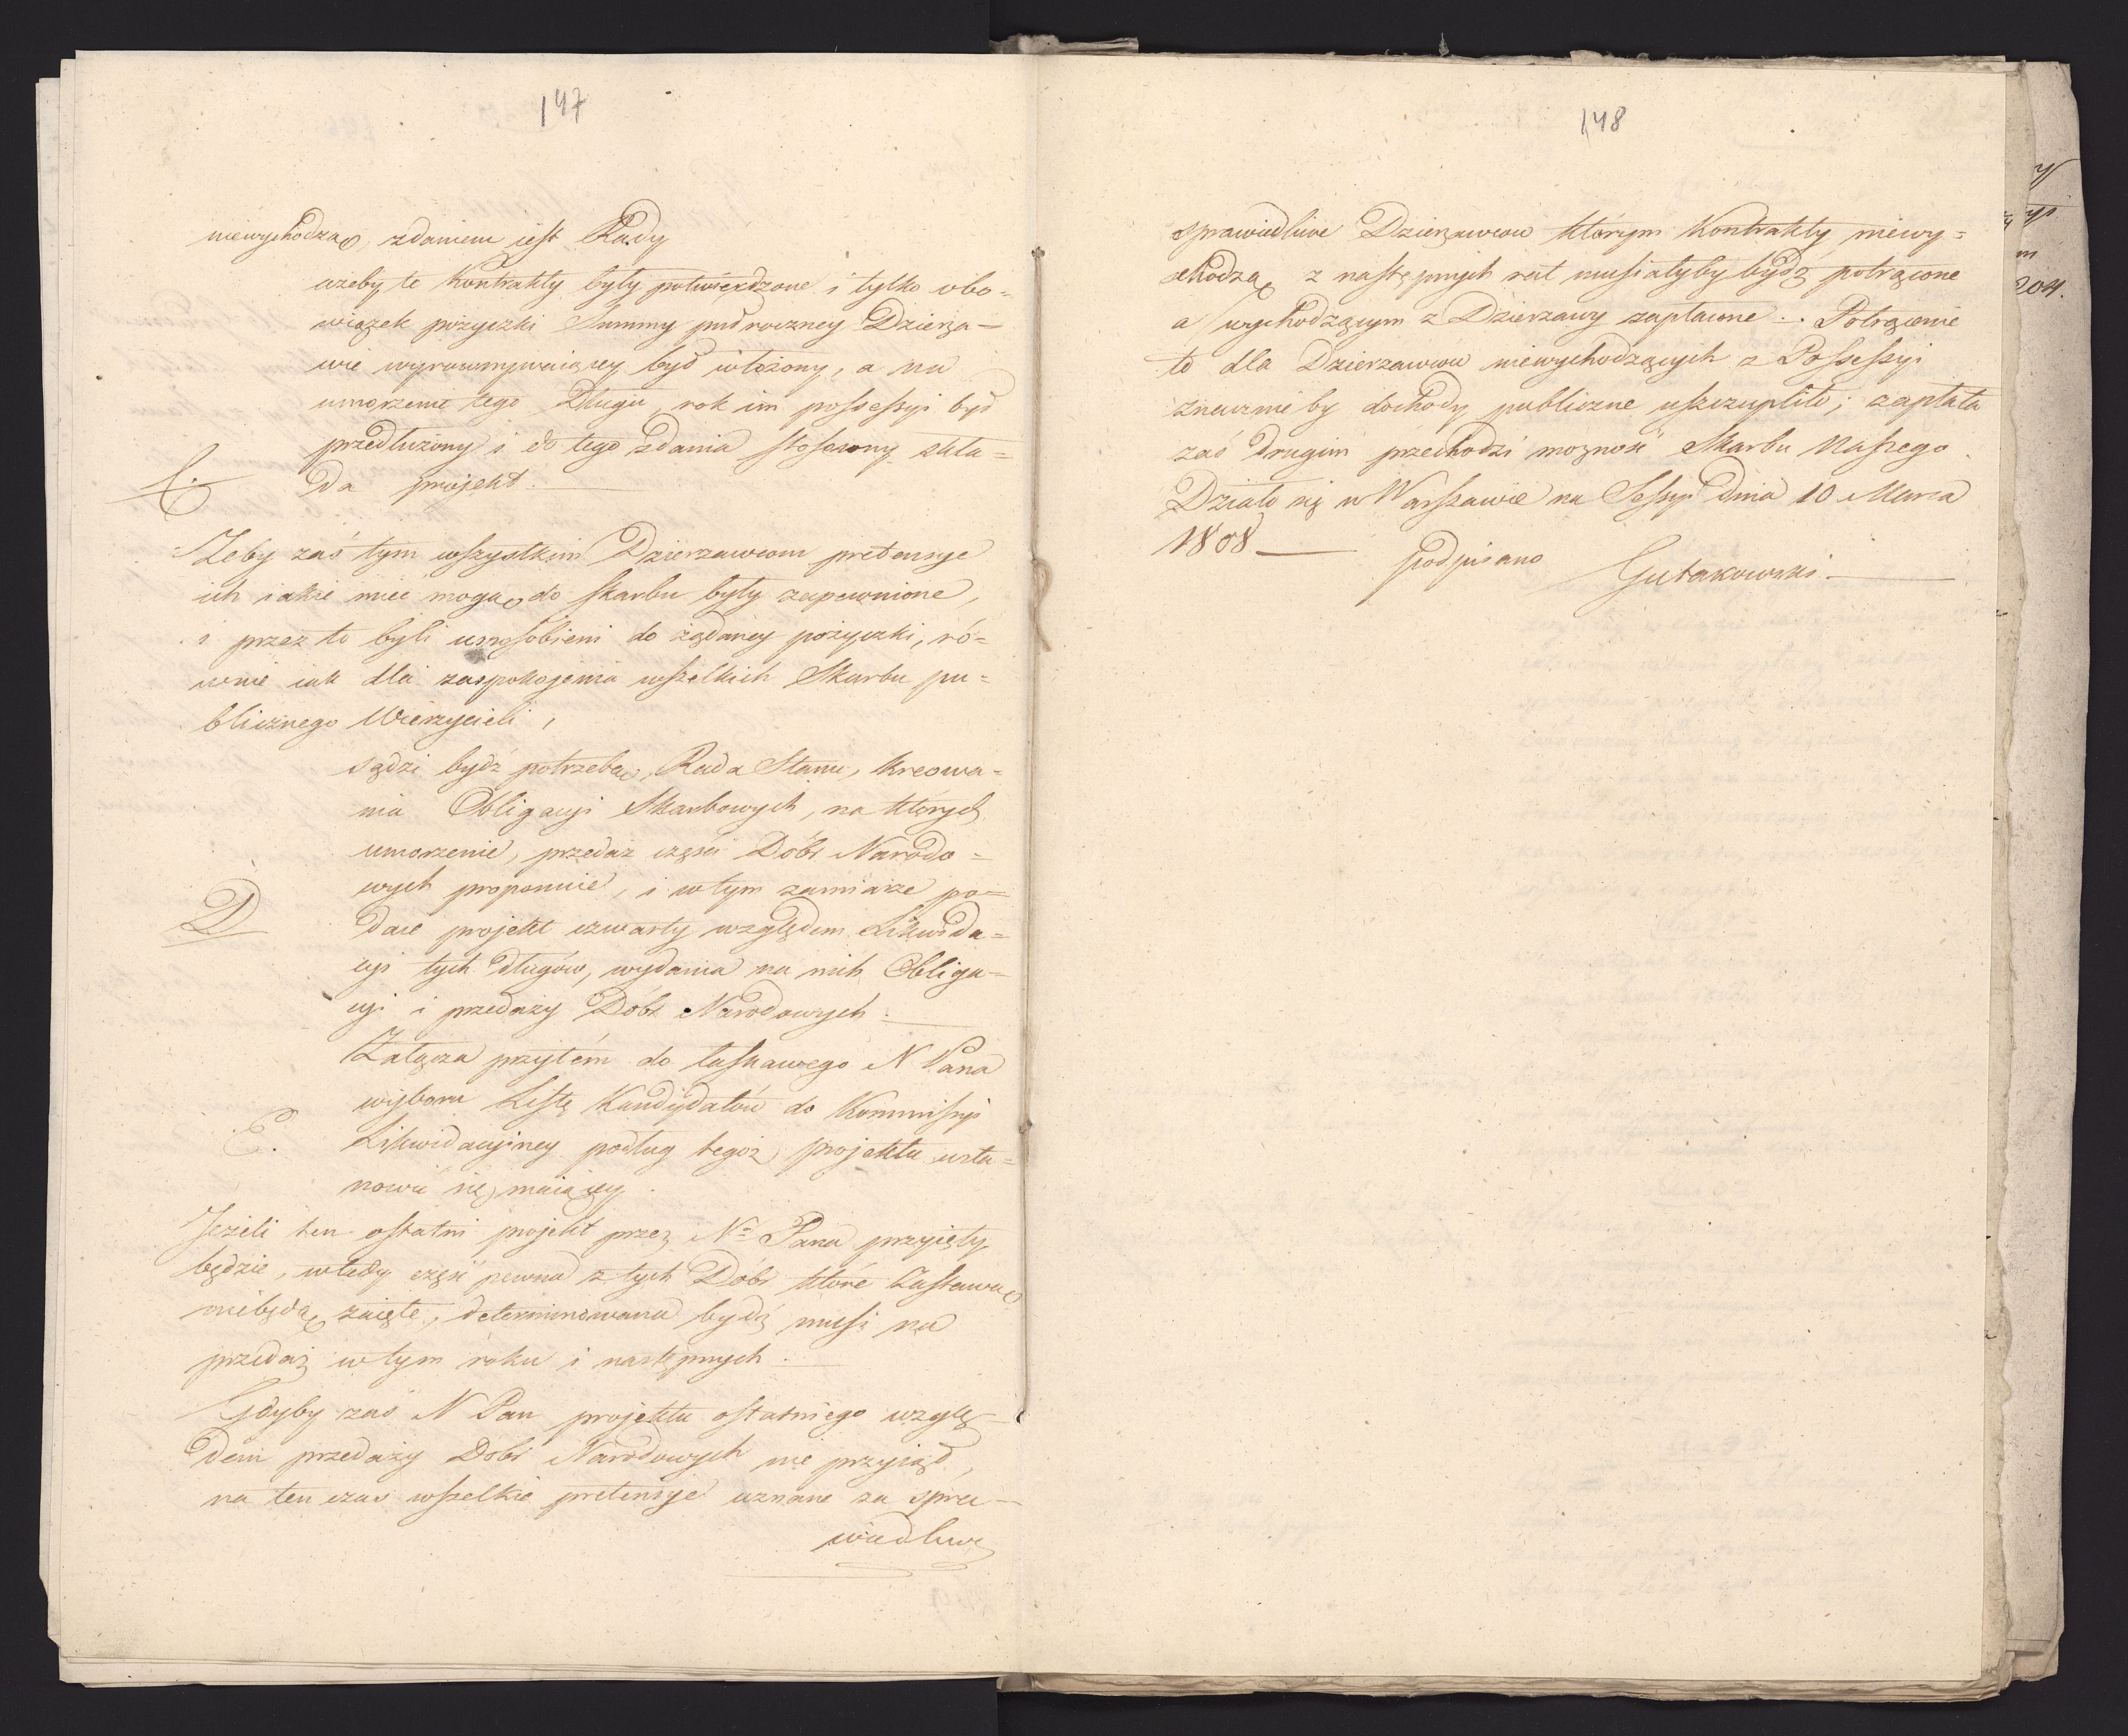 147
niewychodzą, zdaniem iest Rady
ażeby te Kontrakty były potwierdzone i tylko obo=
wiązek pożyczki Summy pułroczney Dzierża=
wie wyrownywaiącey był włożony, a na
umorzenie tego Długu, rok im possessyi był
przedłużony i do tego zdania stosowny skła=
C. da projekt.
Żeby zaś tym wszystkim Dzierzawcom pretensye
ich iakie mieć mogą do skarbu były zapewnione,
i przez to byli usposobieni do żądaney pożyczki, ró=
wnie iak dla zaspokojenia wszelkich Skarbu pu=
blicznego Wierzycieli,
sądzi bydź potrzebą, Rada Stanu, kreowa=
nia Obligacyi Skarbowych, na których
umorzenie, przedaż części Dóbr Narodo=
wych proponuie, i w tym zamiarze po=
D daie projekt czwarty względem Likwida=
cyi tych długów, wydania na nich Obliga=
cyi i przedaży Dóbr Narodowych.
Załącza przytém do łaskawego N Pana
wyboru Listę Kandydatów do Kommissyi
E. Likwidacyiney podług tegoż projektu usta=
nowić się maiącey.
Jeżeli ten ostatni projekt przez No Pana przyięty
będzie, wtedy część pewna z tych Dobr które Zastawą
niebędą zaięte, determinowana bydź musi na
przedaż w tym roku i następnych.
Gdyby zaś N Pan projektu ostatniego wzglę=
dem przedaży Dobr Narodowych nie przyiął,
na ten czas wszelkie pretensye uznane za spra=
wiedliwe
148
sprawiedliwe Dzierzawcow którym Kontrakty niewy=
chodzą z następnych rat musiałyby bydź potrącone
a wychodzącym z Dzierzawy zapłacone. Potrącenie
to dla Dzierzawcow niewychodzących z Possessyi
znacznie by dochody publiczne uszczupliło; zapłata
zaś drugim przechodzi możność Skarbu Naszego.
Działo się w Warszawie na Sessyi dnia 10 Marca
1808
podpisano Gutakowski
204.